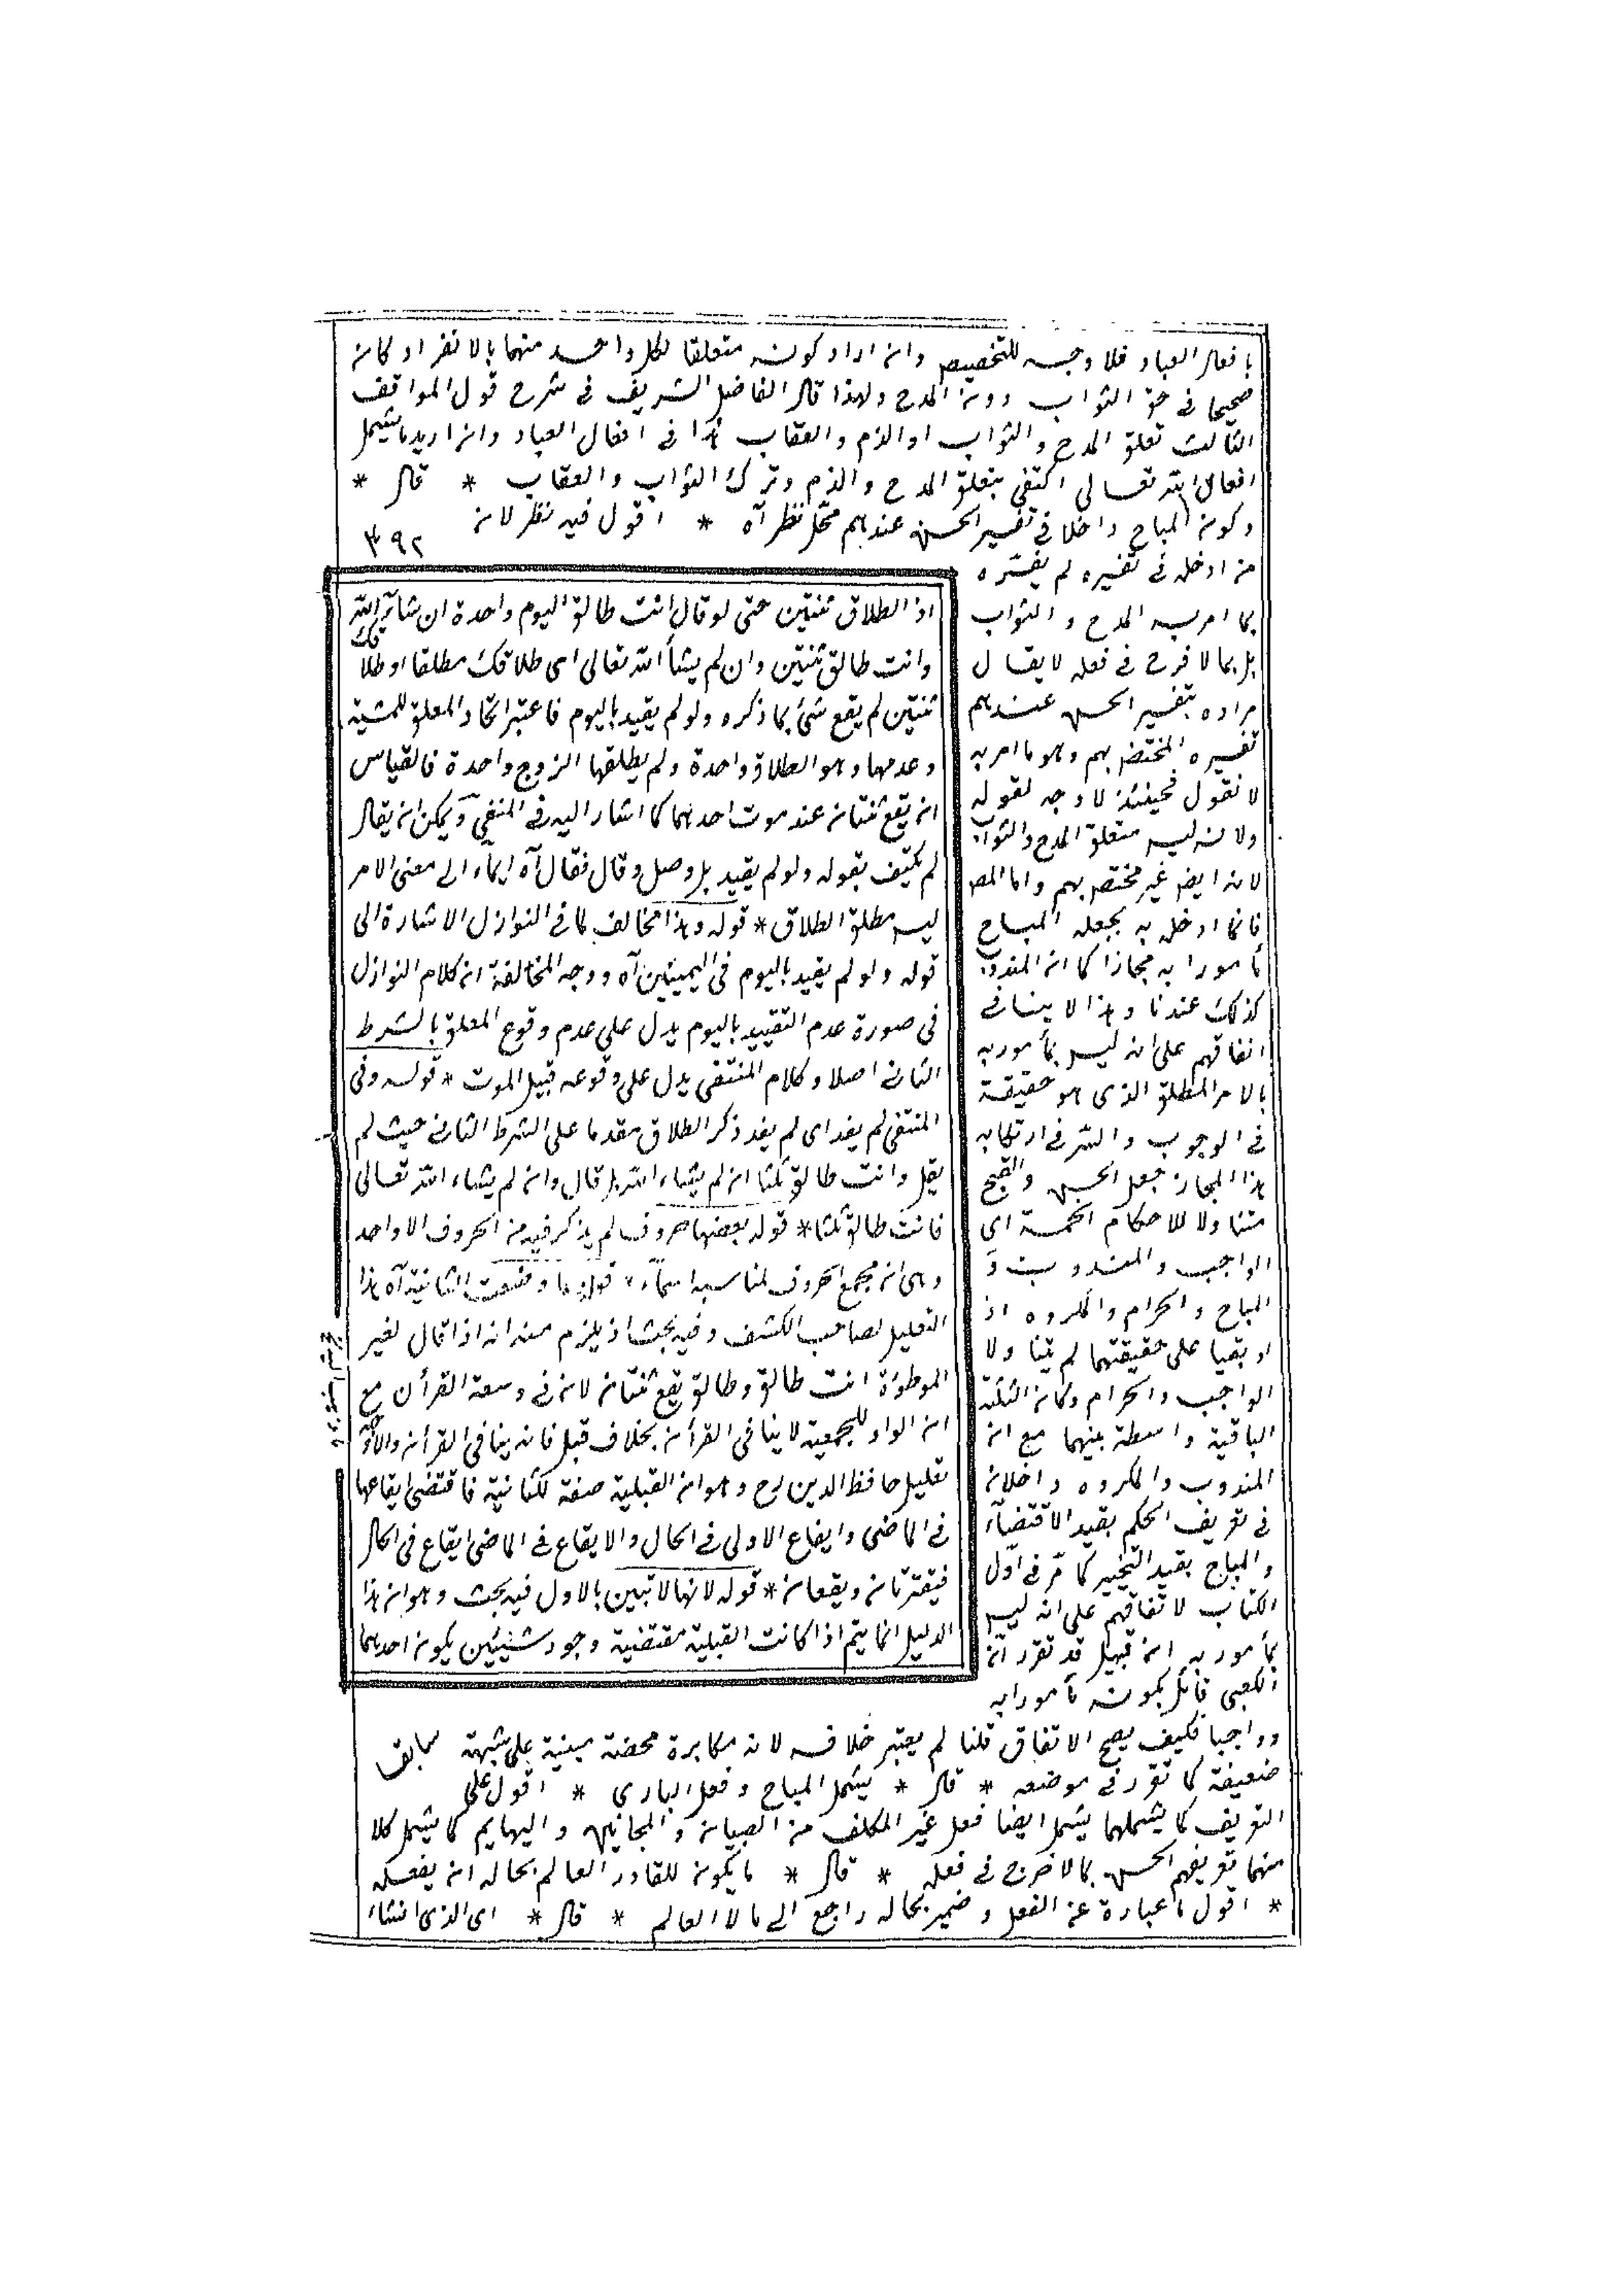 بافعال العباد فلا وجه للتخصيص وان اراد كونه متعلقا لكل واحد منهما بالانفراد كان
صحيحا فى حق الثواب دون المدح ولهذا قال الفاضل الشريف فى شرح قول المواقف
الثالث تعلق المدح والثواب او الذم والعقاب هذا فى افعال العباد وان اريد ما يشمل
افعال الله تعالى اكتفى بتعلق المدح والذم وترك الثواب والعقاب * قال *
وكون المباح داخلا فى تفسير الحسن عندهم محل نظر آه * اقول فيه نظر لان
٣٩٢
من ادخله فى تفسيره لم يفسّره
بما امر به المدح والثواب
بل بما لا حرج فى فعله لا يقال
مراده بتفسير الحسن عندهم
تفسيره المختص بهم وهو ما امر به
لا نقول فحينئذ لا وجه لقوله
ولانه ليس متعلق المدح والثواب
لانه ايضا غير مختص بهم واما المص
فانما ادخله به بجعله المباح
مأمورا به مجازا كما ان المندوب
كذلك عندنا وهذا لا ينافى
اتفاقهم على انه ليس بمأمور به
بالامر المطلق الذى هو حقيقة
فى الوجوب والسّر فى ارتكابه
هذا المجاز جعل الحسن والقبح
متناولا للاحكام الخمسة اى
الواجب والمندوب و
المباح والحرام والمكروه اذ
لو بقيا على حقيقتهما لم يتنا ولا
الواجب والحرام وكان الثلثة
الباقية واسطة بينهما مع ان
المندوب والمكروه داخلان
فى تعريف الحكم بقيد الاقتضاء
والمباح بقيد التخيير كما مّر فى اول
الكتاب لاتفاقهم على انه ليس
بمأمور به ان قيل قد تقرر ان
الكعبى قائل بكونه مأمورا به
وواجبا فكيف يصح الاتفاق قلنا لم يعتبر خلافه لانه مكابرة محضة مبنية على شبهة
ضعيفة كما تقرر فى موضعه * قال * يشمل المباح وفعل البارى * اقول على
التعريف كما يشملهما يشمل ايضا فعل غير المكلف من الصبيان والمجانين والبهايم كما يشمل كلا
منهما تعريفهم الحسن بما لا حرج فى فعله * قال * ما يكون للقادر العالم بحاله ان يفعله
* اقول ما عبارة عن الفعل وضمير بحاله راجع الى ما لا العالم * قال * اى الذى انشاء
اذ الطلاق ثنتين حتى لو قال انت طالق اليوم واحدة ان شاء الله
وانت طالق ثنتين وان لم يشأ الله تعالى اى طلاقك مطلقا او طلاقك
ثنتين لم يقع شئ بما ذكره ولو لم يقيد باليوم فاعتبر اتحاد المعلق للمشية
وعدمها وهو الطلاق واحدة ولم يطلقها الزوج واحدة فالقياس
ان يقع ثنتان عند موت احدهما كما اشار اليه فى المنتفى ويمكن ان يقال
لم يكتف بقوله ولو لم يقيد بل وصل وقال فقال آه ايماء الى معنى الامر
ليس مطلق الطلاق * قوله وهذا مخالف لما فى النوازل الاشارة الى
قوله ولو لم يقيد باليوم فى اليمينين آه ووجه المخالفة ان كلام النوازل
فى صورة عدم التقييد باليوم يدل على عدم وقوع المعلق بالشرط
الثانى اصلا وكلام المنتفى يدل على وقوعه قبيل الموت * قوله وفى
المنتفى لم يفد اى لم يفد ذكر الطلاق مقدما على الشرط الثانى حيث لم
يقل وانت طالق ثلثا ان لم يشاء الله بل قال وان لم يشاء الله تعالى
فانت طالق ثلثا * قوله بعضها حروف لم يذكر فيه من الحروف الا واحد
وهى ان مجمع الحروف لمناسبة اسماء * قوله ما وقعت الثانية آه هذا
التعليل لصاحب الكشف وفيه بحث اذ يلزم منه انه اذا قال لغير
الموطؤة انت طالق وطالق يقع ثنتان لان فى وسعة القرأن مع
ان الواو للجمعية لا ينافى القرأن بخلاف قبل فانه ينافى القرأن
تعليل حافظ الدين رح وهو ان القبلية صفة للثانية فاقتضى ايقاعها
فى الماضى وايقاع الاولى فى الحال والايقاع فى الماضى ايقاع فى الحال
فيقترنان ويقعان * قوله لانها لا تبين بالاول فيه بحث وهو ان هذا
الدليل انما يتم اذا كانت القبلية مقتضية وجود شيئين يكون احدهما
سابق